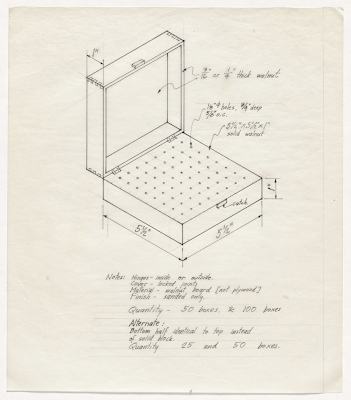 1"
3/16" or 1/4" thick walnut
holes, 3/4" deep
o.c.
5 1/2" x 5 1/2" x 1"
solid walnut
1"
catch
5 1/2"
5 1/2"
Notes: Hinges - inside or outside.
Cover - locked joints
Material - walnut board [not plywood]
Finish - sanded only.
Quantity - 50 boxes. & 100 boxes
Alternate:
Bottom half identical to top instead
of solid block.
Quantity 25 and 50 boxes.